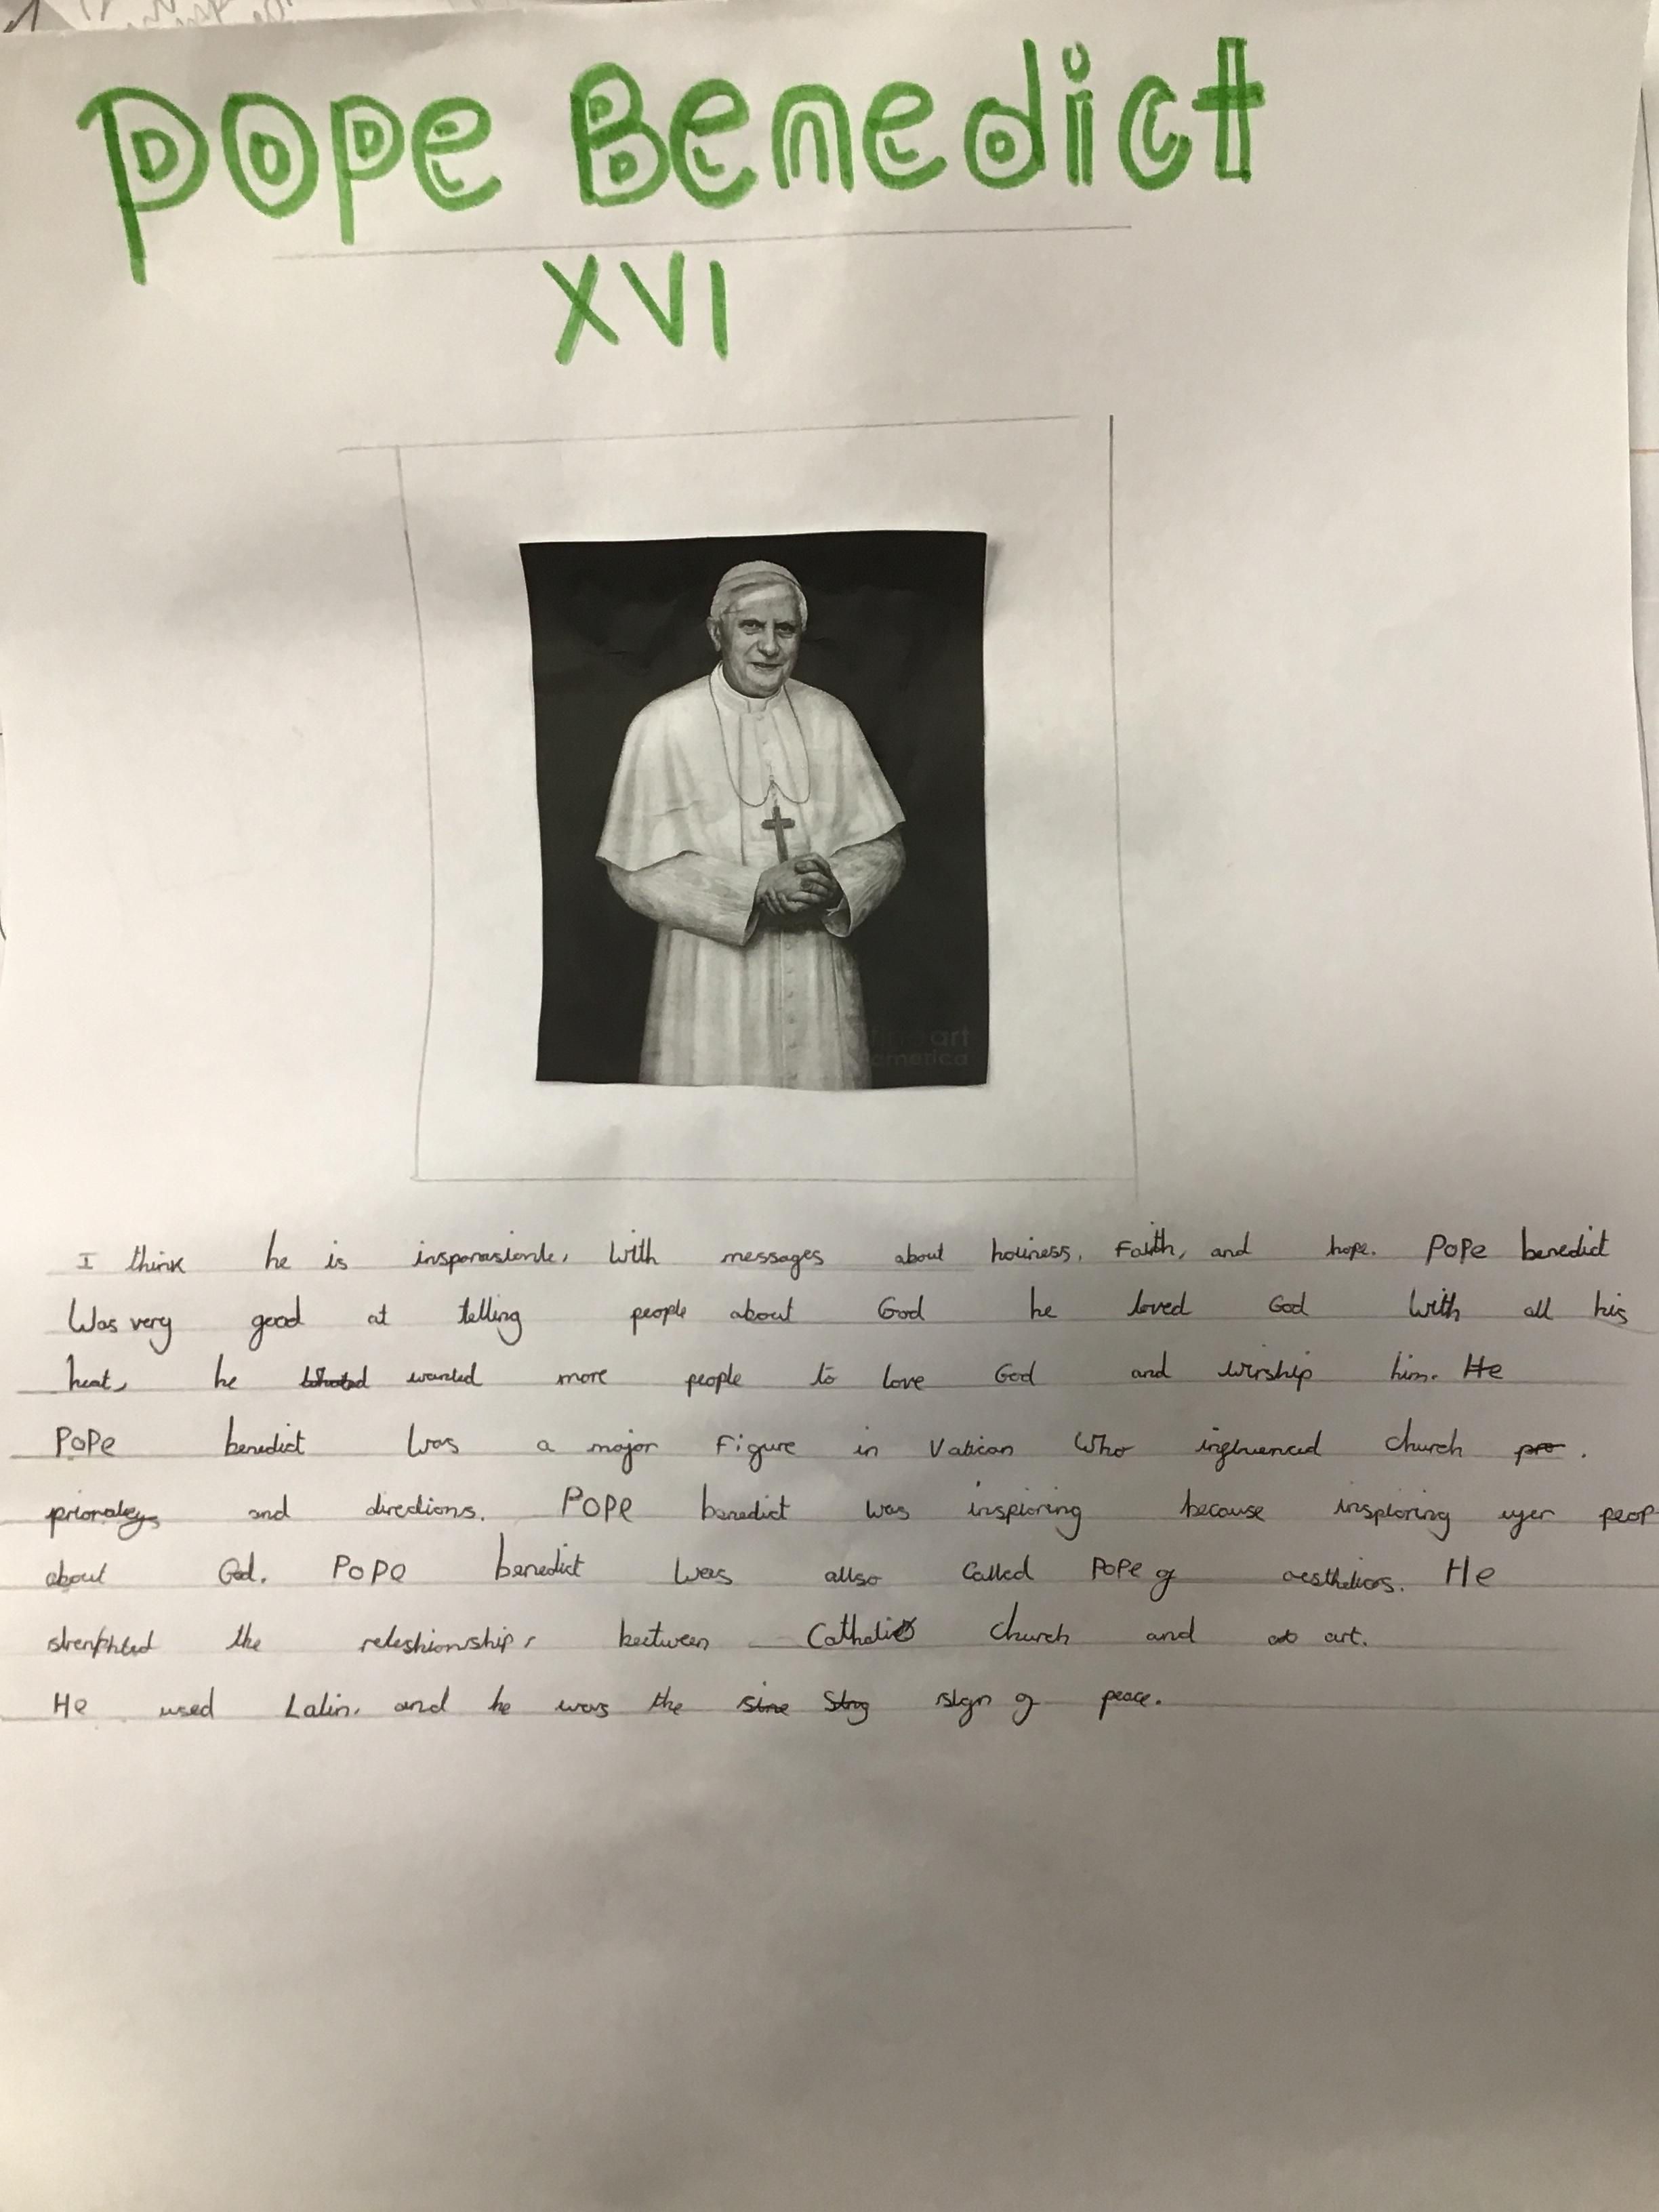 Pope Benedict
XVI
fine art
america
I think he is insporasionle, with messages about holiness, Faith, and hope. Pope benedict
Was very good at telling people about God he loved God with all his
heat, he wanted more people to love God and wirship him. He
Pope benedict was a major Figure in Vatican Who influenced church pro .
and directions. Pope benedict was inspioring because inspioring uyer peop
about God. Pope benedict was allso Called Pope of
He
the releshionship, beetween Catholic church and art.
He used Latin. and he was the sine sign of peace.